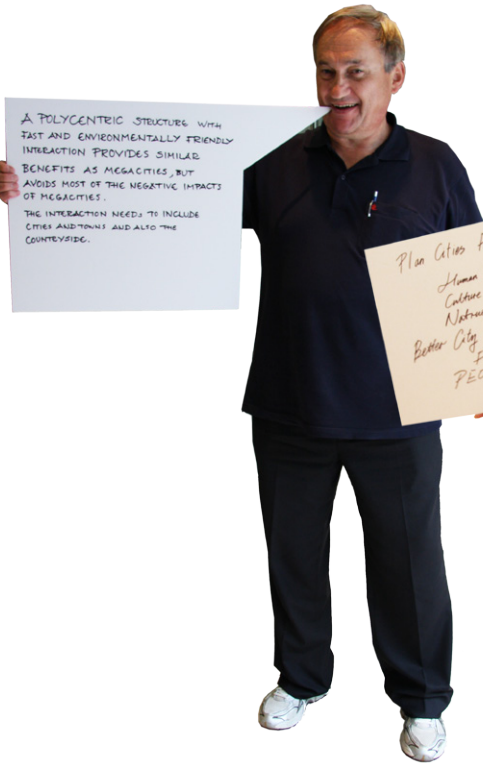 A POLYCENTRIC STRUCTURE WITH
FAST AND ENVIRONMENTALLY FRIENDLY
INTERACTION PROVIDES SIMILAR
BENEFITS AS MEGACITIES, BUT
AVOIDS MOST OF THE NEGATIVE IMPACTS
OF MEGACITIES.
THE INTERACTION NEEDS TO INCLUDE
CITIES AND TOWNS AND ALSO THE
COUNTRYSIDE.
Plan Cities
Human
Culture
Better City